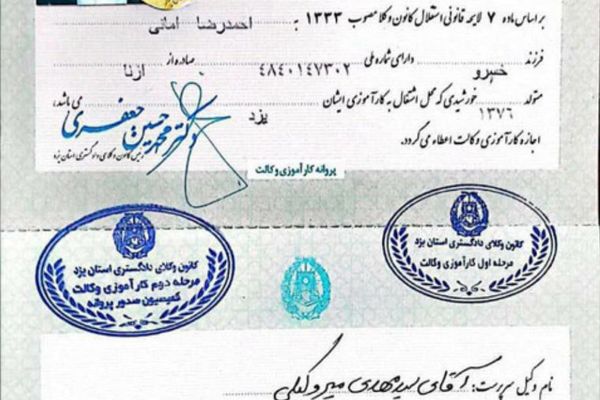 بر اساس ماده ۷ لایحه قانونی استقلال کانون وکلا مصوب ۱۳۳۳ به احمدرضا امانی
فرزند خسرو دارای شماره ملی ۴۸۴۰۱۴۷۳۰۲ صادره از ازنا
متولد ۱۳۷۶ خورشیدی که محل اشتغال به کارآموزی ایشان یزد می باشد،
اجازه کارآموزی وکالت اعطاء می گردد.
دکتر محمد حسین جعفری
رئیس کانون وکلای دادگستری استان یزد
پروانه کارآموزی وکالت
کانون وکلای دادگستری استان یزد
مرحله اول کارآموزی وکالت
کانون وکلای دادگستری استان یزد
مرحله دوم کارآموزی وکالت
کمیسیون صدور پروانه
نام وکیل سرپرست: آقای سید مهدی میروکیلی